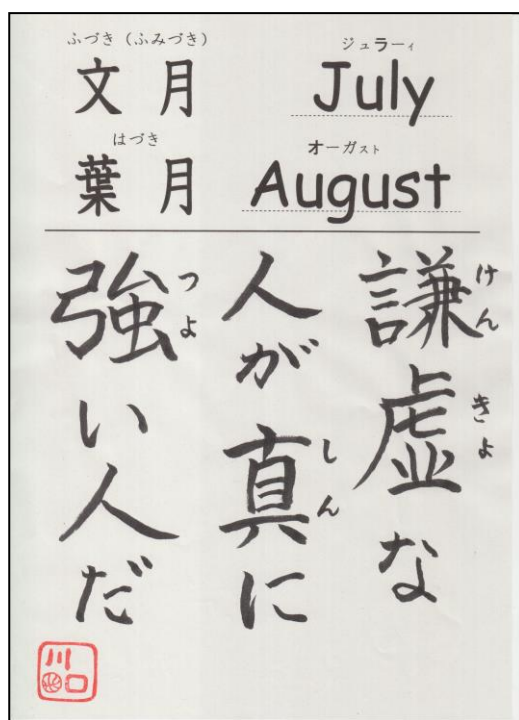 ふづき（ふみづき）
文月
ジュラーィ
July
はづき
葉月
オーガスト
August
けんきょ
謙虚な
しん
人が真に
つよ
強い人だ
川口